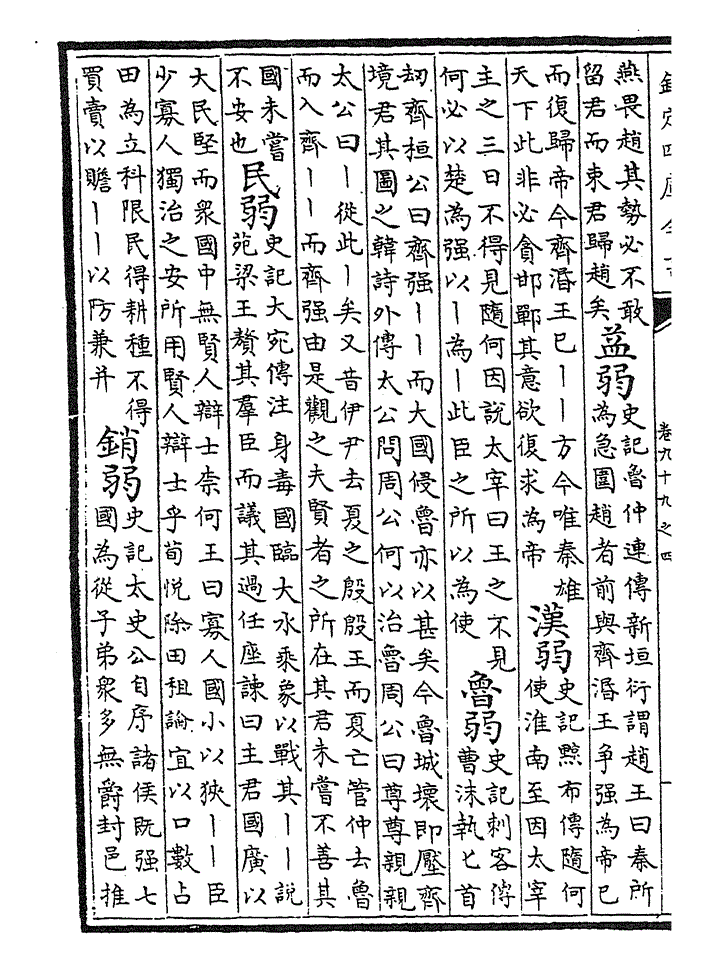 欽定四庫全書
卷九十九之四
燕畏趙其勢必不敢
留君而束君歸趙矣
益弱
史記魯仲連傳新垣衍謂趙王曰秦所
為急圍趙者前與齊湣王争强為帝已
而復歸帝今齊湣王已丨丨方今唯秦雄
天下此非必貪邯鄲其意欲復求為帝
漢弱
史記黥布傳隨何
使淮南至因太宰
主之三日不得見隨何因說太宰曰王之不見
何必以楚為强以丨為丨此臣之所以為使
魯弱
史記刺客傳
曹沫執匕首
劫齊桓公曰齊强丨丨而大國侵魯亦以甚矣今魯城壞即壓齊
境君其圖之韓詩外傳太公問周公何以治魯周公曰尊尊親親
太公曰丨從此丨矣又昔伊尹去夏之殷殷王而夏亡管仲去魯
而入齊丨丨而齊强由是觀之夫賢者之所在其君未嘗不善其
國未嘗
不安也
民弱
史記大宛傳注身毒國臨大水乘象以戰其丨丨說
苑梁王贅其羣臣而議其過任座諫曰主君國廣以
大民堅而衆國中無賢人辯士柰何王曰寡人國小以狹丨丨臣
少寡人獨治之安所用賢人辯士乎荀悅除田租論宜以口數占
田為立科限民得耕種不得
買賣以贍丨丨以防兼并
銷弱
史記太史公自序諸侯既强七
國為從子弟衆多無爵封邑推